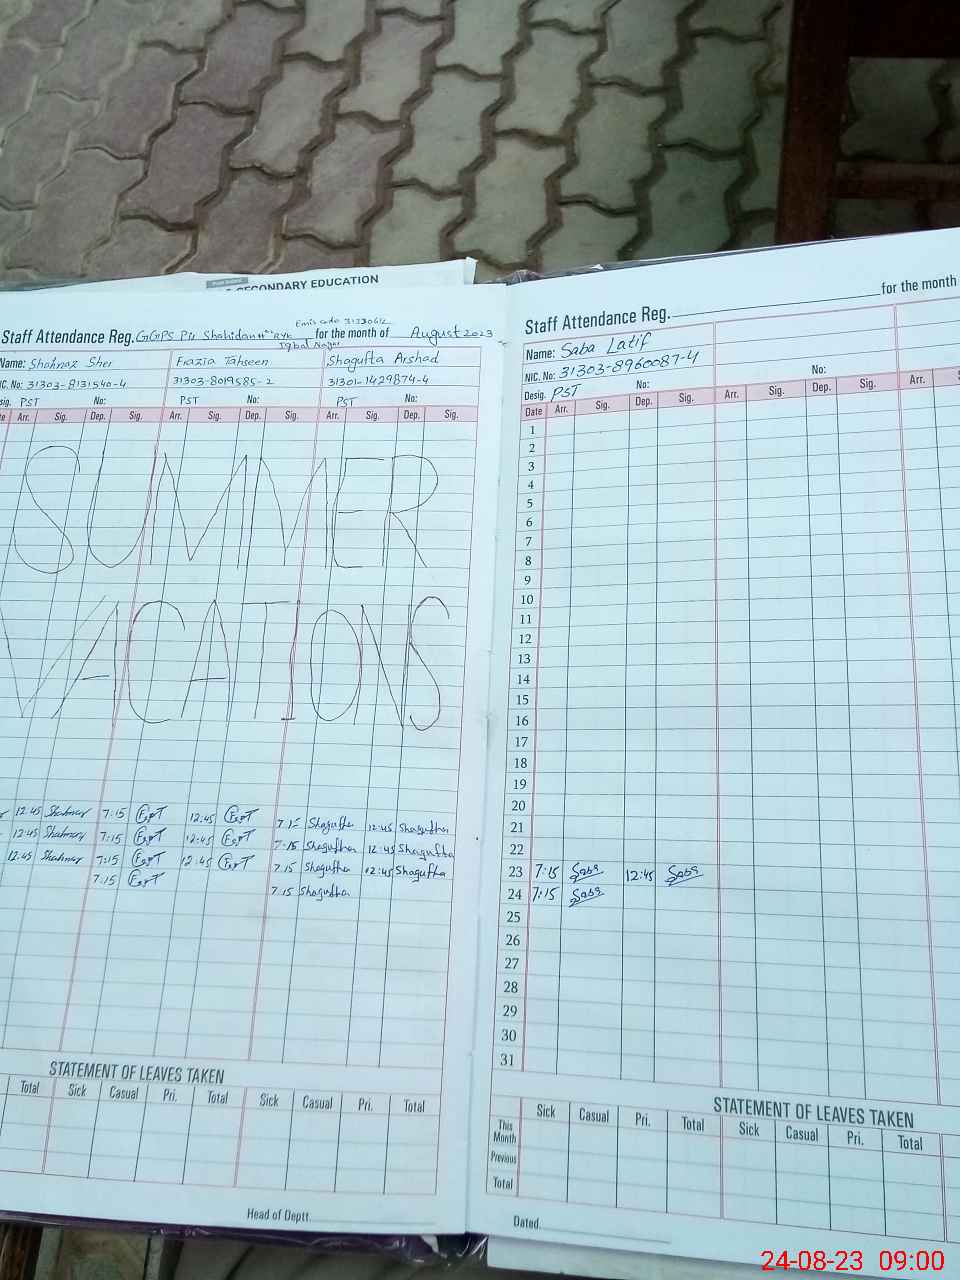 SECONDARY EDUCATION
Emis code 31330612
Staff Attendance Reg. GGPS Pir Shahidan RYK for the month of August 2023
Iqbal Nagar
Name: Shahnaz Sher Frazia Tahseen Shagufta Arshad
NIC. No: 31303-8131540-4 31303-8019585-2 31301-1429874-4
Desig. PST No: PST No: PST No:
Arr. Sig. Dep. Sig. Arr. Sig. Dep. Sig. Arr. Sig. Dep. Sig.
SUMMER
VACATIONS
12:45 Shahnaz 7:15 12:45 7:15 Shagufta 12:45 Shagufta
12:45 Shahnaz 7:15 12:45 7:15 Shagufta 12:45 Shagufta
12:45 Shahnaz 7:15 12:45 7:15 Shagufta 12:45 Shagufta
7:15 7:15 Shagufta
STATEMENT OF LEAVES TAKEN
Total Sick Casual Pri. Total Sick Casual Pri. Total
Head of Deptt.
Staff Attendance Reg. for the month
Name: Saba Latif
NIC. No: 31303-8960087-4 No:
Desig. PST No:
Date Arr. Sig. Dep. Sig. Arr. Sig. Dep. Sig. Arr.
1
2
3
4
5
6
7
8
9
10
11
12
13
14
15
16
17
18
19
20
21
22
23 7:15 Saba 12:45 Saba
24 7:15 Saba
25
26
27
28
29
30
31
STATEMENT OF LEAVES TAKEN
Sick Casual Pri. Total Sick Casual Pri. Total
This Month
Previous
Total
Dated.
24-08-23 09:00